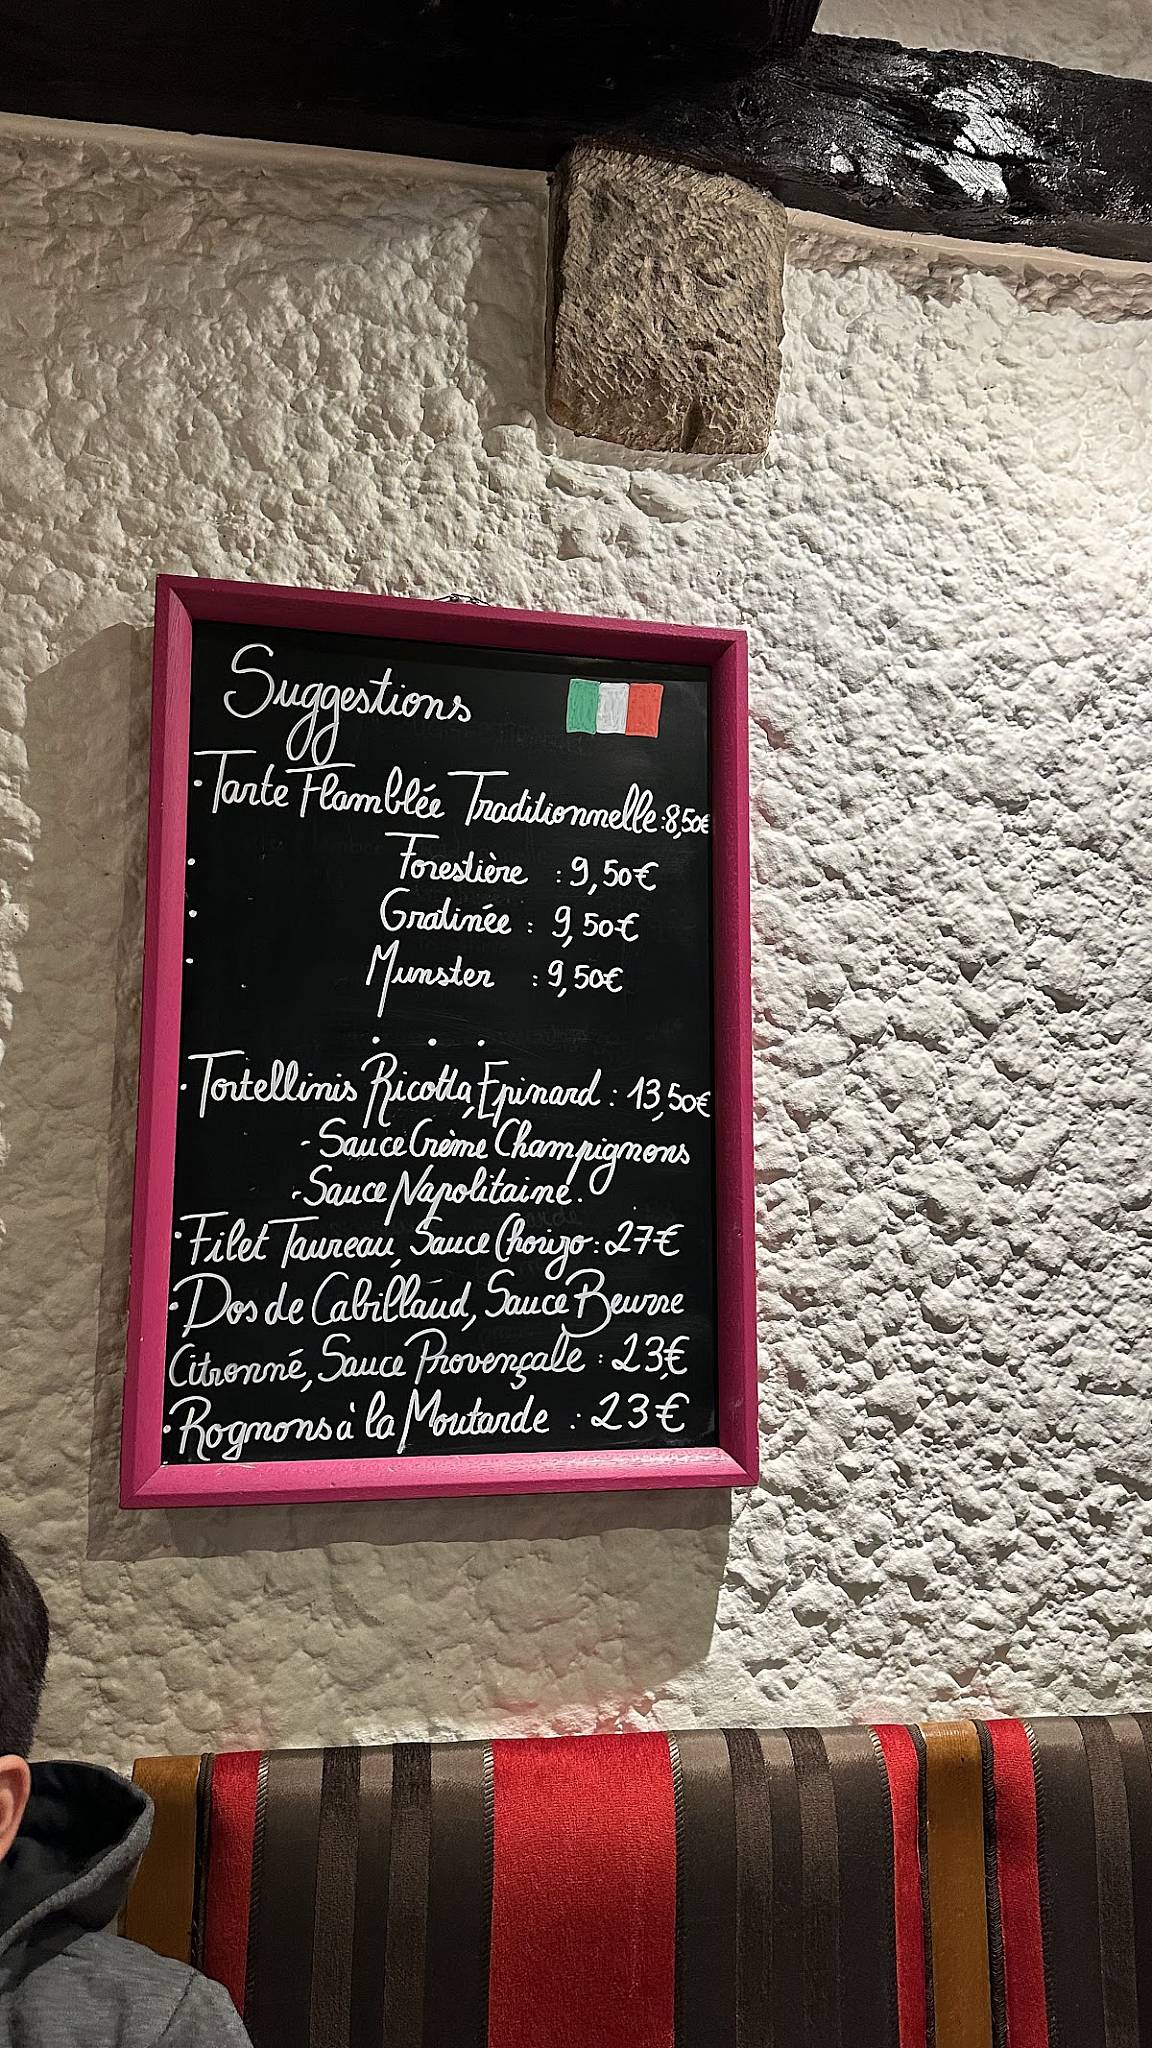 Suggestions
· Tarte Flamblée Traditionnelle : 8,50€
· Forestière : 9,50€
· Gratinée : 9,50€
· Munster : 9,50€
. . .
· Tortellinis Ricotta, Epinard : 13,50€
- Sauce Crème Champignons
- Sauce Napolitaine.
· Filet Taureau, Sauce Chorizo : 27€
· Dos de Cabillaud, Sauce Beurre
Citronné, Sauce Provençale : 23€
· Rognons à la Moutarde : 23€